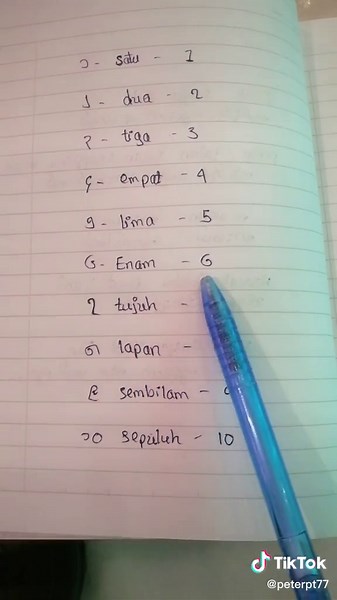 ၁ - satu - 1
၂ - dua - 2
၃ - tiga - 3
၄ - empat - 4
၅ - lima - 5
၆ - Enam - 6
၇ tujuh -
၈ lapan -
၉ sembilam -
၁၀ sepuluh - 10
TikTok
@peterpt77